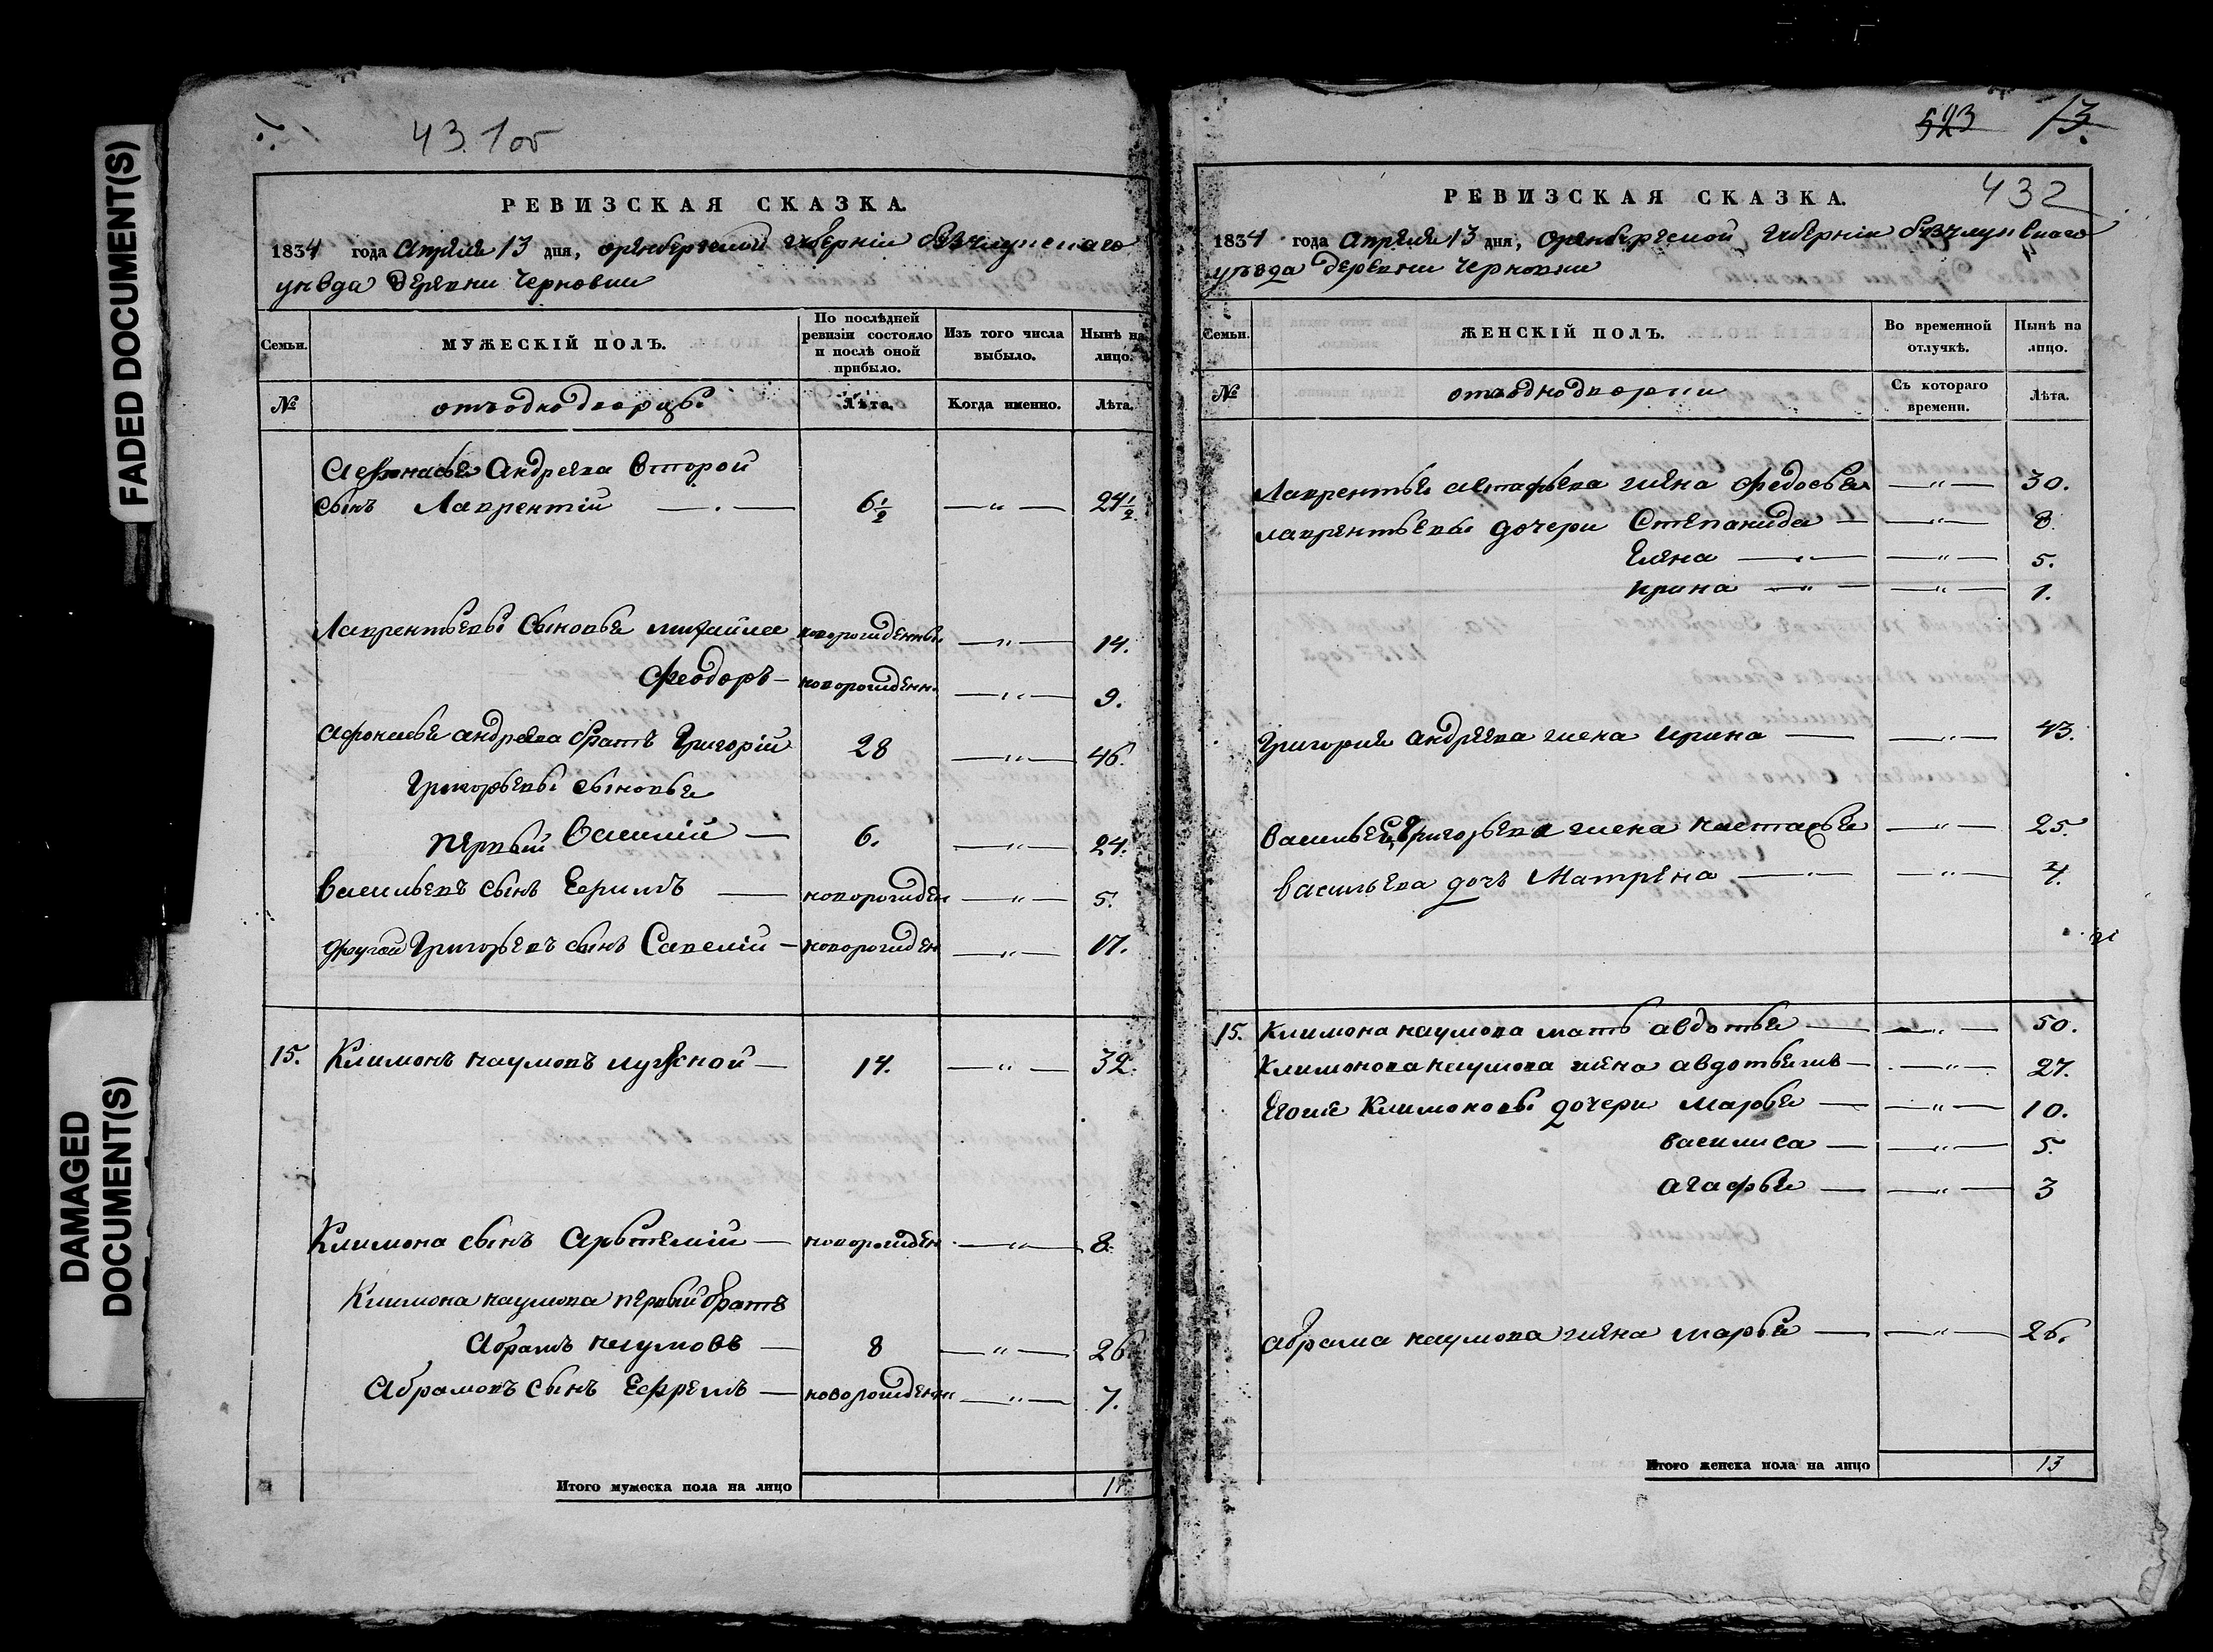 FADED DOCUMENT(S)
DAMAGED
DOCUMENT(S)
431об
РЕВИЗСКАЯ СКАЗКА.
1834 года Апреля 13 дня, оренбургской губерніи бузулукскаго
уезда деревни Черновки
Семьи. МУЖЕСКІЙ ПОЛЪ. По послѣдней ревизіи состояло и послѣ оной прибыло. Изъ того числа выбыло. Нынѣ на лицо.
№ отъ однодворцовъ Лѣта. Когда именно. Лѣта.
Андреева второй
сынъ Лаврентій — 6½ — " — 24½
Лаврентьевы сыновья михайла новорожденны — " — 14.
Феодоръ — новорожденн. — " — 9.
Афонасья андреева братъ Григорій 28 — " — 46.
Григорьевы сыновья
первый Василий — 6. — " — 24.
Васильевъ сынъ — новорожден — " — 5.
другой Григорьевъ сынъ Савелій — новорожден — " — 17.
15. Климонъ наумовъ — 14. — " — 32.
Климона сынъ Арьтемій — новорожден — " — 8.
Климона наумова первый братъ
Абрамъ наумовъ — 8 — " — 26
Абрамовъ сынъ Ефремъ — новорожденн — " — 7.
Итого мужеска пола на лицо
523 13.
432
РЕВИЗСКАЯ СКАЗКА.
1834 года Апреля 13 дня, Оренбургской Губерніи бузулукскаго
уезда деревни Черновки
Семьи. ЖЕНСКІЙ ПОЛЪ. Во временной отлучкѣ. Нынѣ на лицо.
№ Съ котораго времени. Лѣта.
Лаврентья жена Федосья — " — 30.
лаврентьевы дочери Степанида — " — 8.
Елена — " — 5.
Ирина — " — 1.
Григория андреева жена Ирина — " — 43.
Василья Григорьева жена настасья — " — 25.
васильева дочь Матрена — " —
15. Климона наумова мать авдотья — " — 50.
Климонова наумова жена — " — 27.
Климоновы дочери марья — " — 10.
василиса — " — 5.
агафья — " — 3
абрама наумова жена марья — " — 26.
Итого женска пола на лицо 13